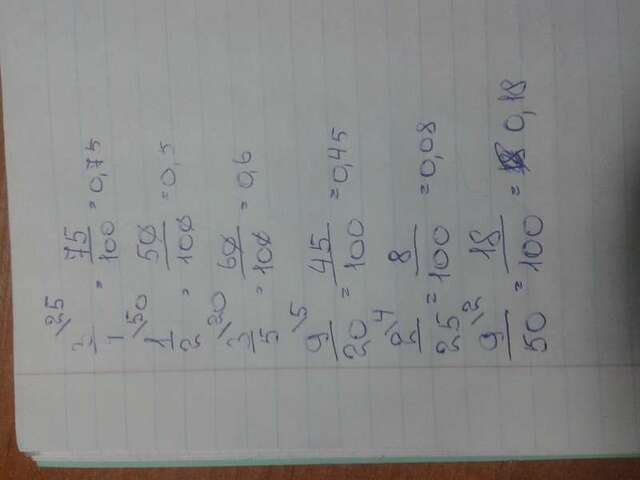 3/25 / 4 = 75/100 = 0,75
1/50 / 2 = 50/100 = 0,5
3/20 / 5 = 60/100 = 0,6
9\5 / 20 = 45/100 = 0,45
2\4 / 25 = 8/100 = 0,08
9\2 / 50 = 18/100 = 0,18